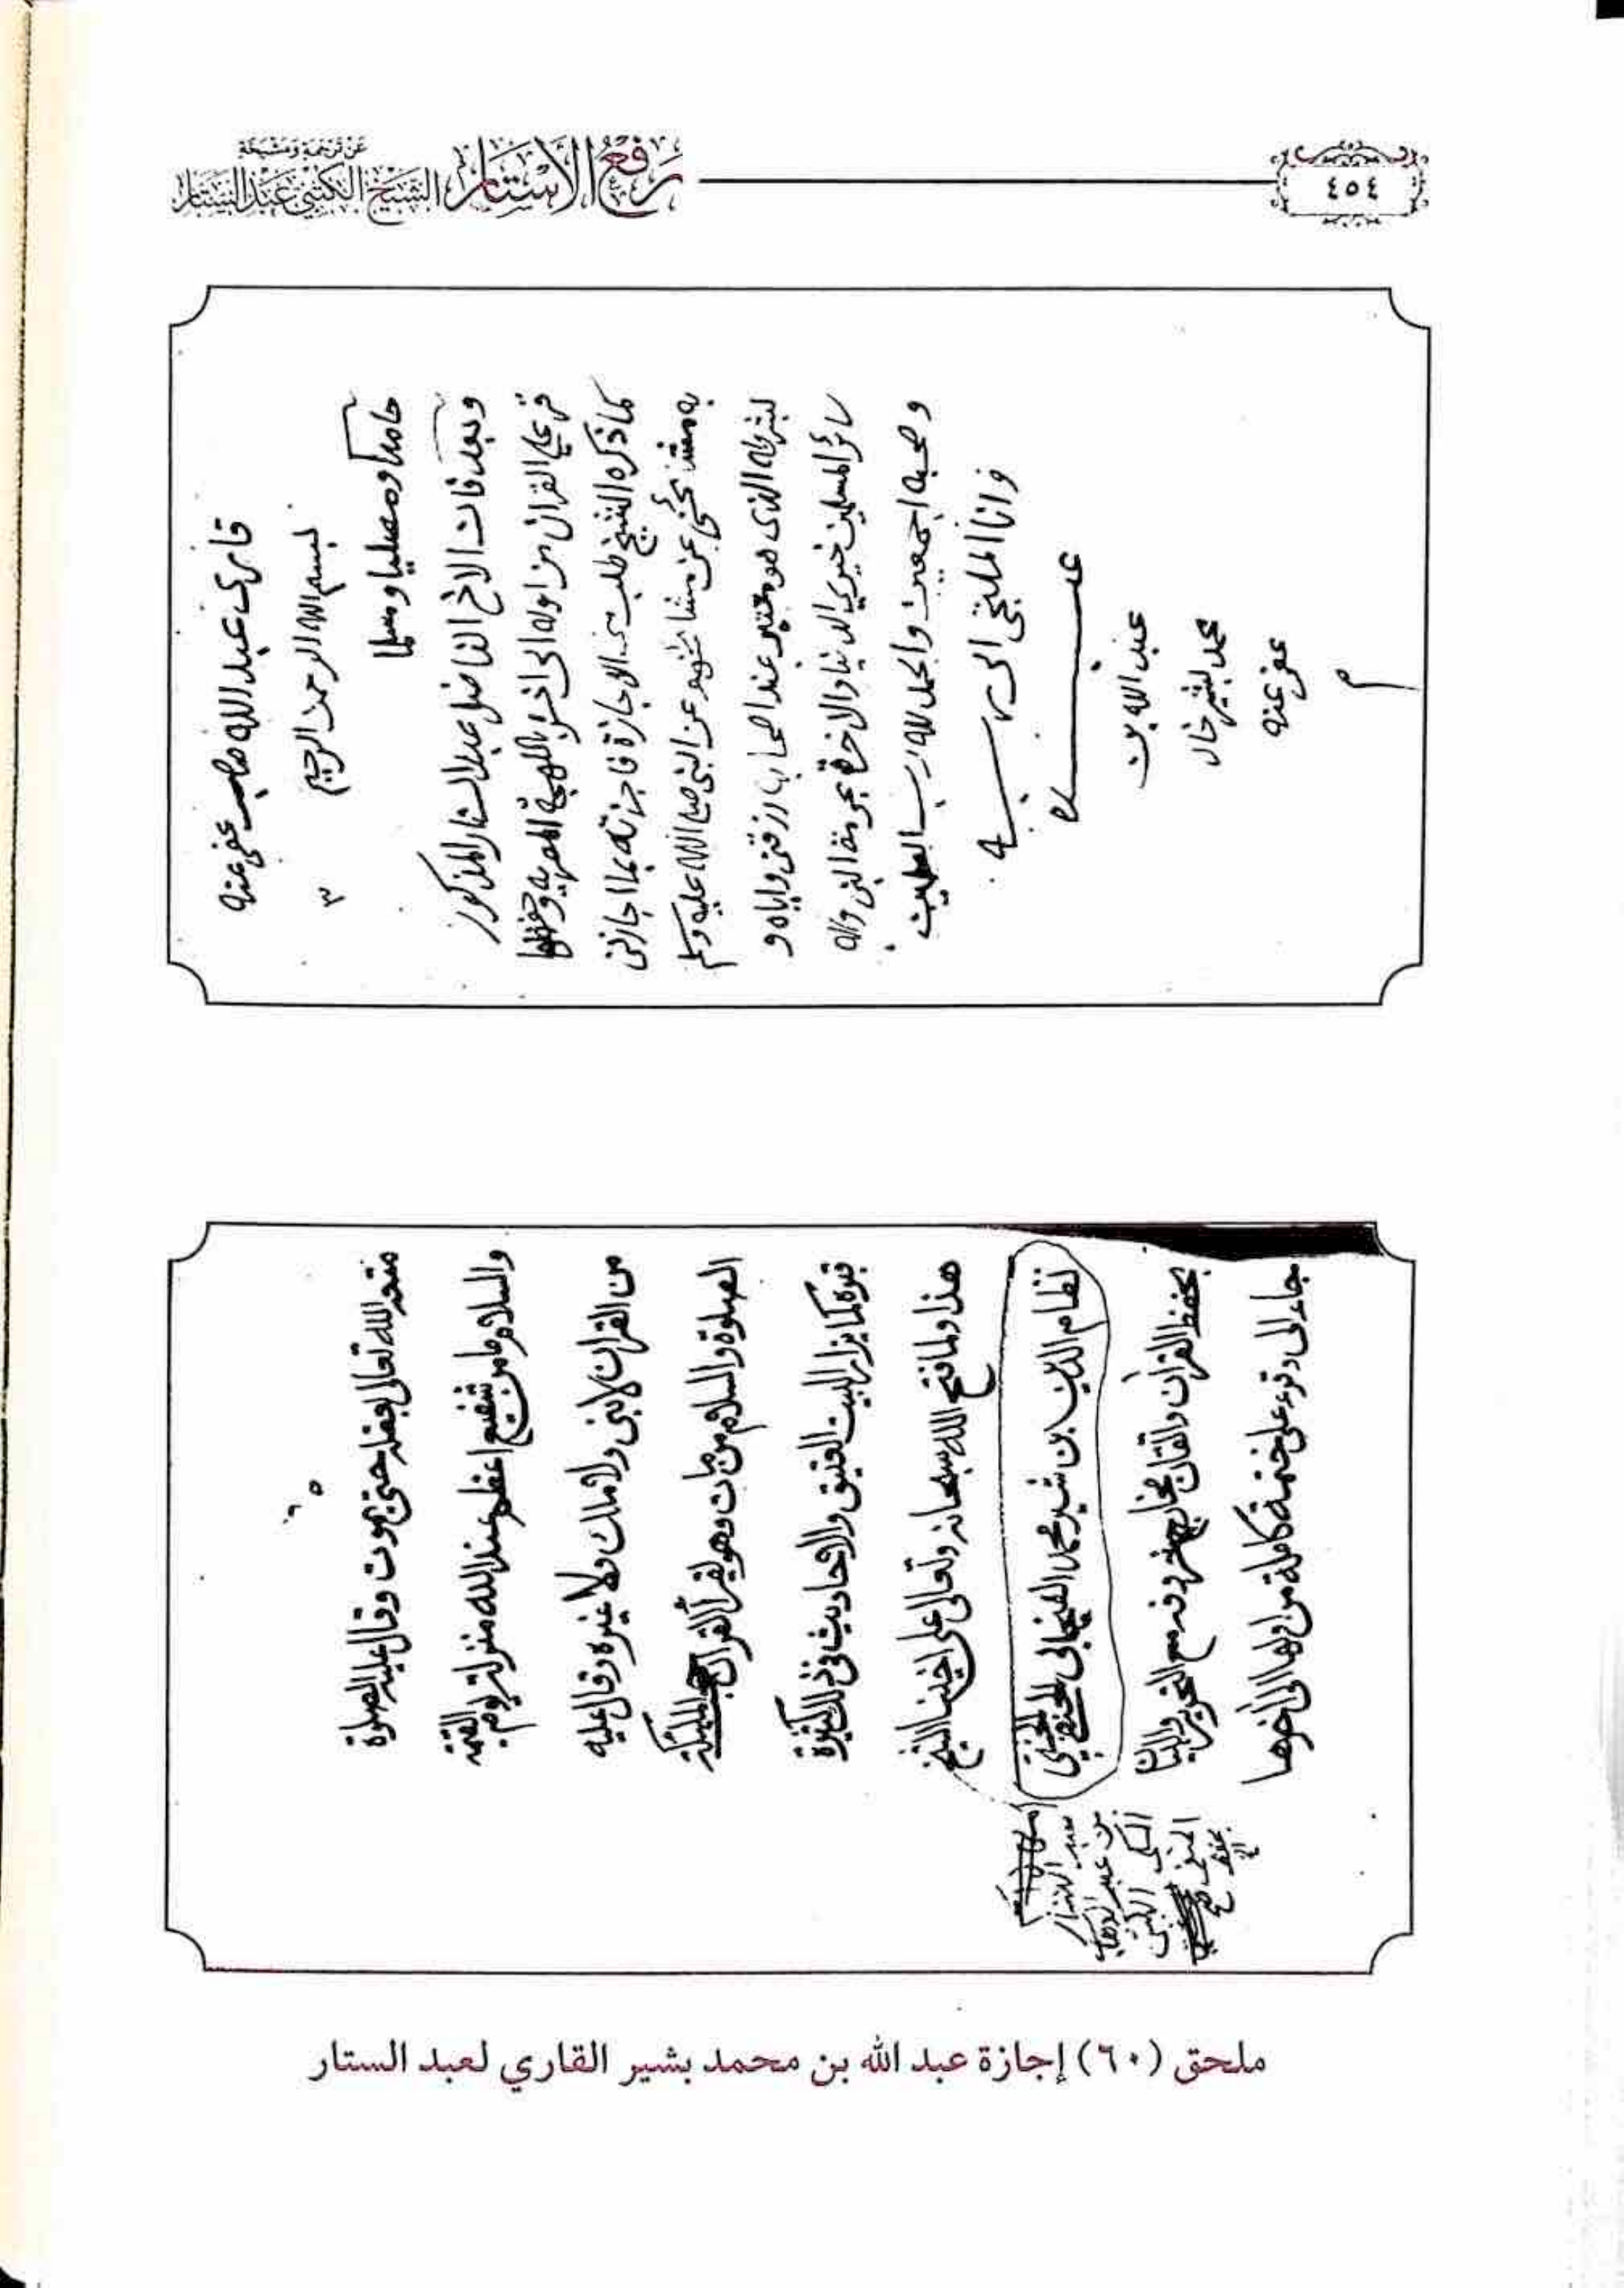 ٤٥٤
رفع الأستار عن ترجمة ومشيخة الشيخ الكتبي عبد الستار
قاري عبد الله صاحب عفي عنه
٣
بسم الله الرحمن الرحيم
حامدا ومصليا ومسلما
وبعد فان الاخ الفاضل عبد الستار المذكور
قرء علي القران من اوله الى اخره باللهجة المصرية وحفظها
كما ذكره الشيخ طلب مني الاجازة فاجزته بما اجازني
به مشائخي عن مشائخهم عن النبي صلى الله عليه وسلم
بشرطه الذي هو معتبر عند اصحابه رزقني واياه و
سائر المسلمين خيري الدنيا والاخرة بحرمة النبي واله
وصحبه اجمعين والحمد لله رب العلمين
وانا الملتجي الى ربه
عبد الله بن
محمد بشير خان
عفي عنه
متعه الله تعالى بعقله حتى يموت وقال عليه الصلوة
والسلام ما من شفيع اعظم عند الله منزلة يوم القيمة
من القران لا نبي ولا ملك ولا غيره وقال عليه
الصلوة والسلام من مات وهو يقرأ القران الملئكة
قبره كما يزار البيت العتيق والاحاديث في ذلك كثيرة
هذا ولما فتح الله سبحانه وتعالى على اخينا الشيخ
نظام الدين بن شير محمد الفنجابي الحنفي
بحفظ القرآن واتقان مخارج حروفه مع التحرير والبيان
جاء الى وقرء علي ختمة كاملة من اولها الى اخرها
عبد الستار
بن عبد الوهاب
المكي الكتبي
الحنفي
ملحق (٦٠) إجازة عبد الله بن محمد بشير القاري لعبد الستار